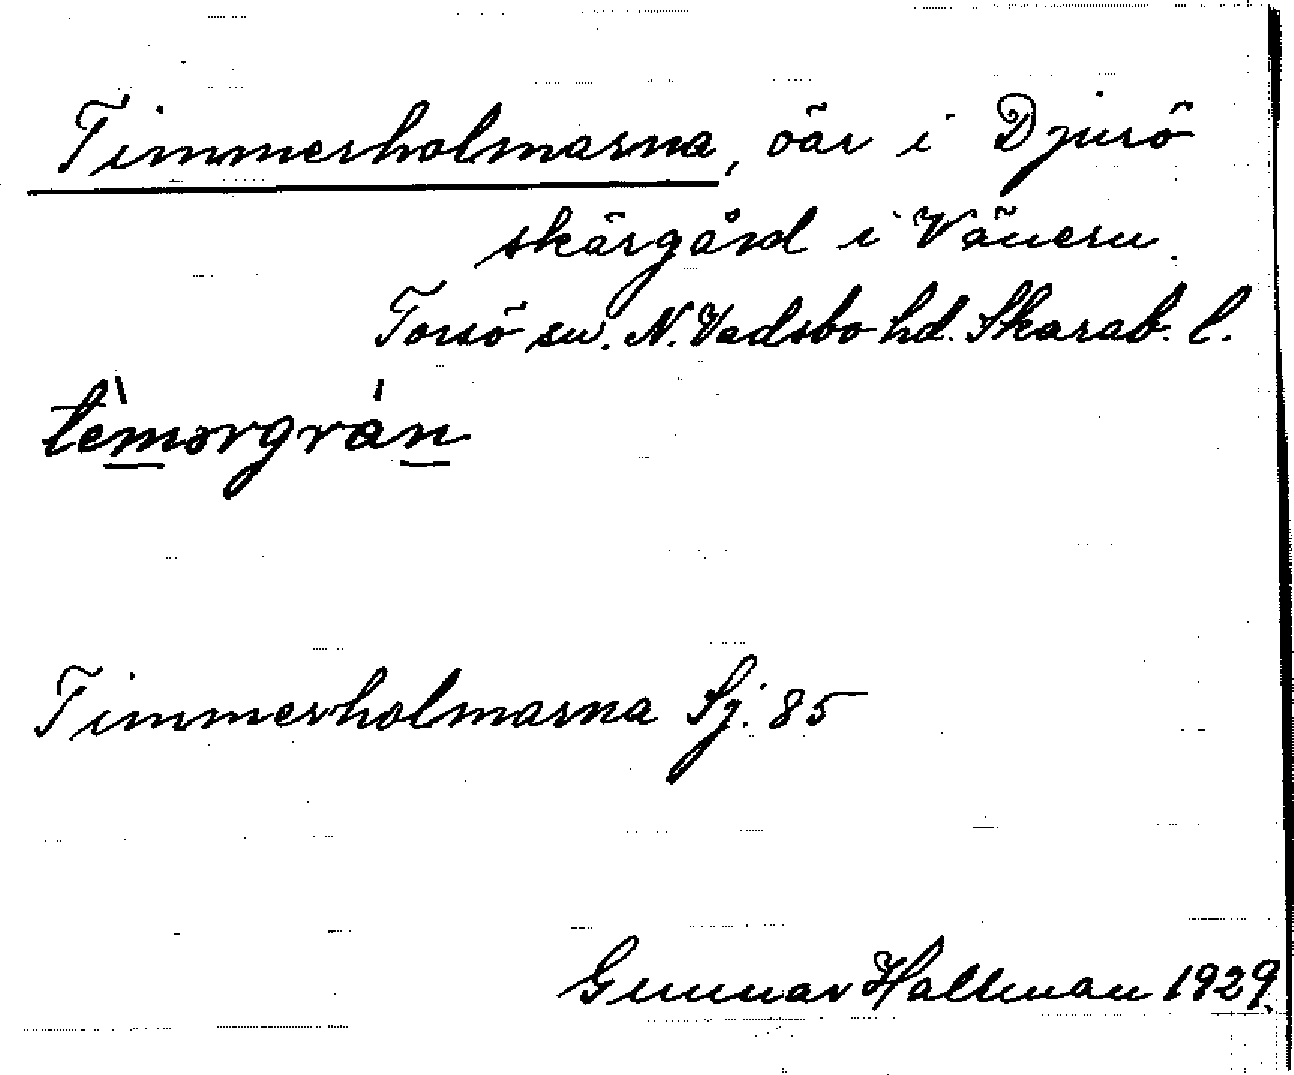 Timmerholmarna, öar i Djurö
skärgård i Vänern.
Torsö sn. N. Vadsbo hd. Skarab. l.
tèmərgrán
Timmerholmarna Sj. 85
Gunnar Hallman 1929.